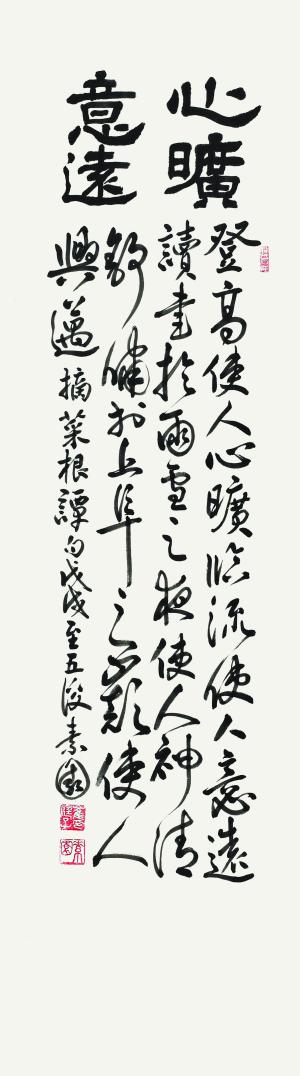 心曠
意遠
登高使人心曠臨流使人意遠
讀書於雨雪之夜使人神清
舒嘯於丘阜之巔使人
興邁 摘菜根譚句戊戌 五後素園